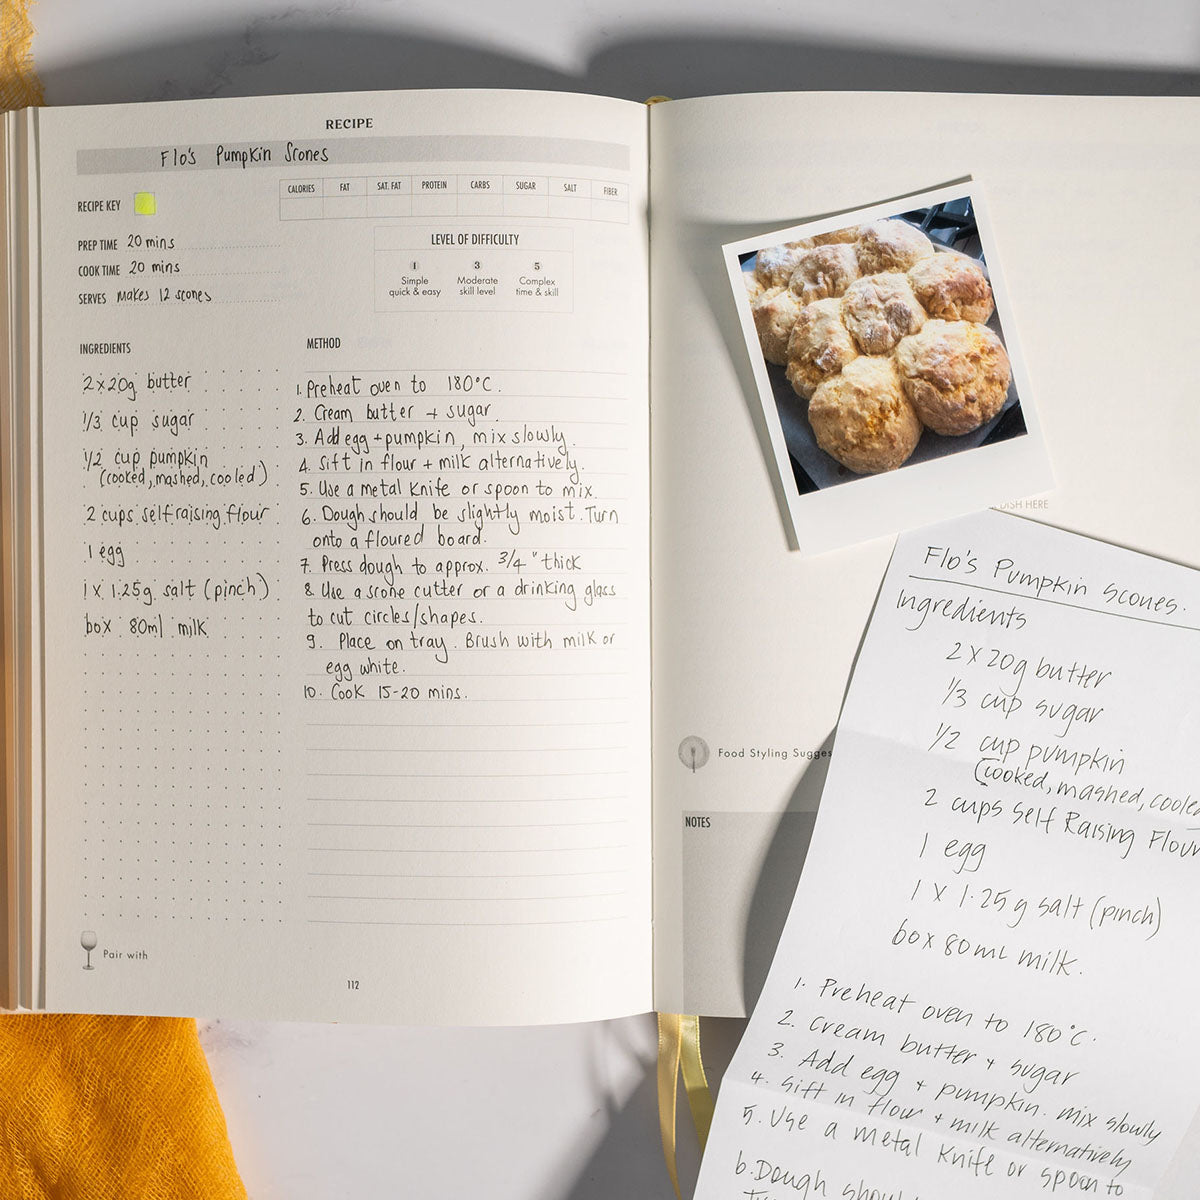 RECIPE
Flo's Pumpkin Scones
RECIPE KEY
CALORIES FAT SAT. FAT PROTEIN CARBS SUGAR SALT FIBER
PREP TIME 20 mins
COOK TIME 20 mins
SERVES Makes 12 scones
LEVEL OF DIFFICULTY
1 3 5
Simple Moderate Complex
quick & easy skill level time & skill
INGREDIENTS
2x20g butter
1/3 cup sugar
1/2 cup pumpkin
(cooked, mashed, cooled)
2 cups self raising flour
1 egg
1 x 1.25g salt (pinch)
box 80ml milk
METHOD
1. Preheat oven to 180°C.
2. Cream butter + sugar.
3. Add egg + pumpkin, mix slowly.
4. Sift in flour + milk alternatively.
5. Use a metal knife or spoon to mix.
6. Dough should be slightly moist. Turn
onto a floured board.
7. Press dough to approx. 3/4" thick
8. Use a scone cutter or a drinking glass
to cut circles/shapes.
9. Place on tray. Brush with milk or
egg white.
10. Cook 15-20 mins.
Pair with
112
DISH HERE
Food Styling Sugges
NOTES
Flo's Pumpkin Scones.
Ingredients
2 x 20g butter
1/3 cup sugar
1/2 cup pumpkin
(cooked, mashed, cooled
2 cups Self Raising Flour
1 egg
1 x 1.25g salt (pinch)
box 80ml milk.
1. Preheat oven to 180°C.
2. Cream butter + sugar
3. Add egg + pumpkin. mix slowly
4. Sift in flour + milk alternatively
5. Use a metal Knife or spoon to
6. Dough